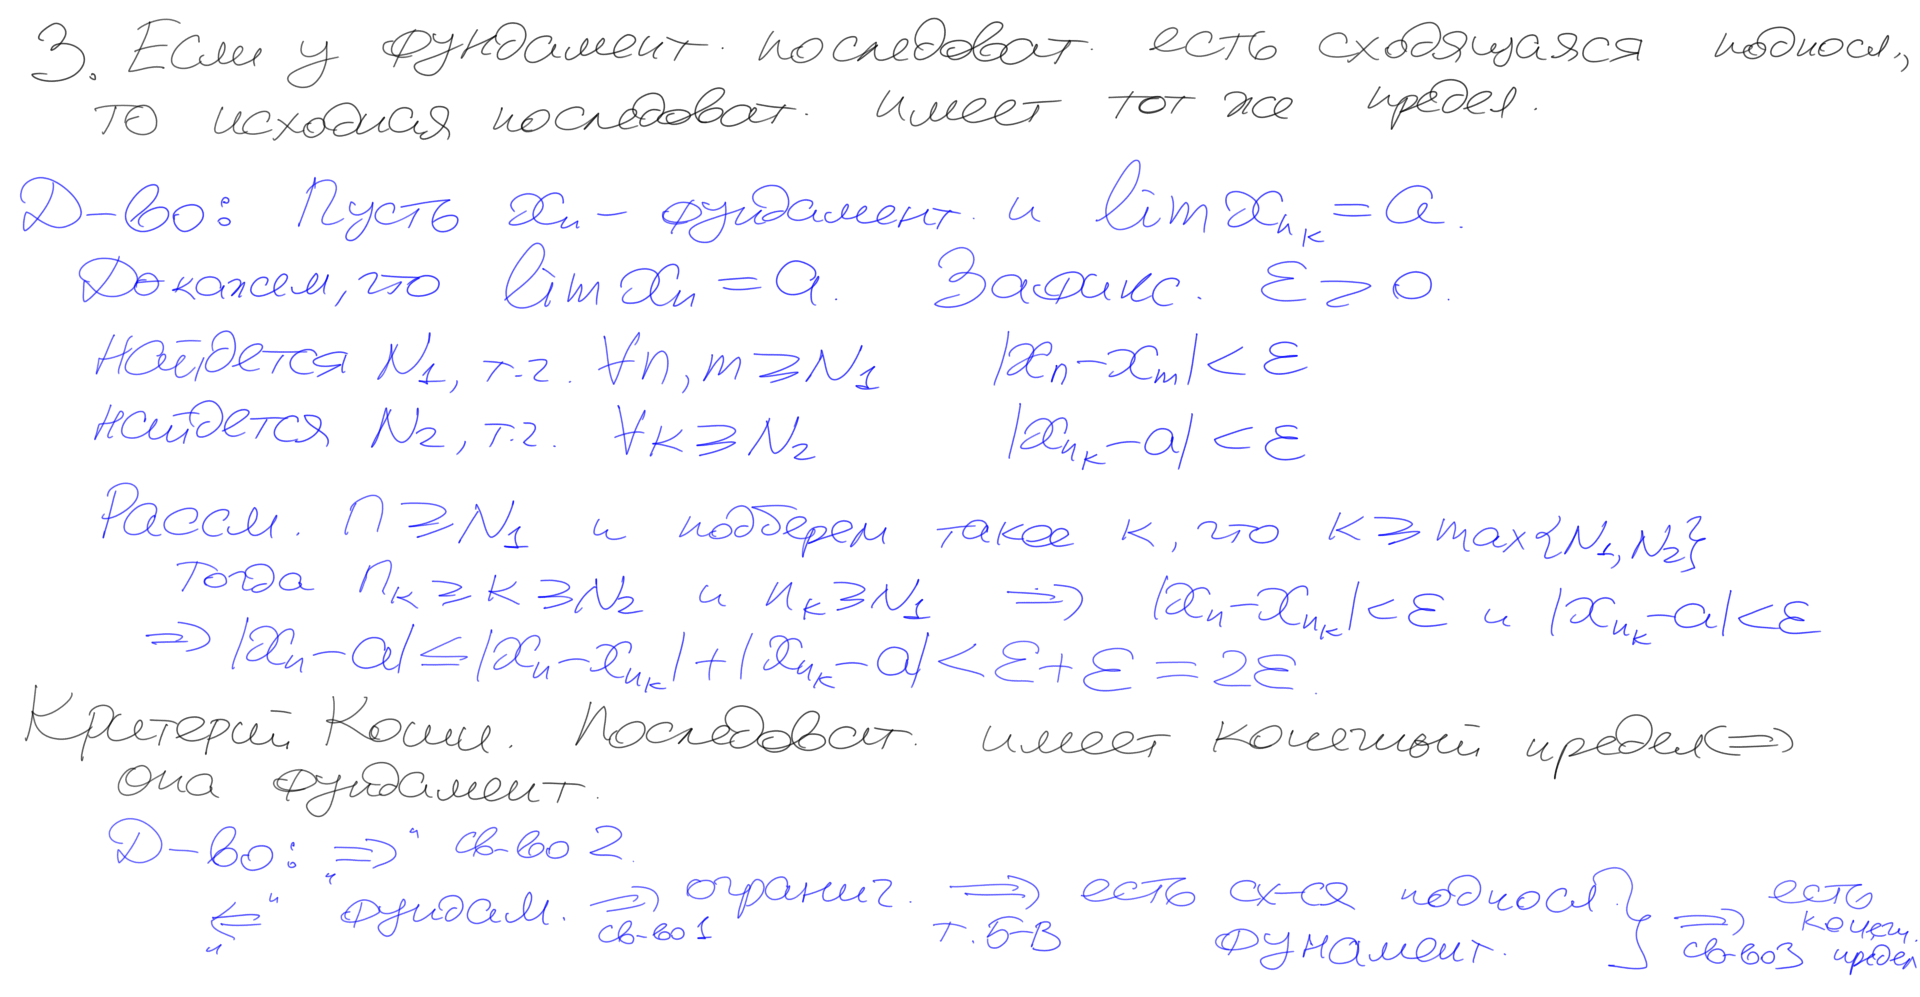 3. Если у фундамент. последоват. есть сходящаяся подпосл.,
то исходная последоват. имеет тот же предел.
Д-во: Пусть xₙ – фундамент. и lim xₙₖ = a.
Докажем, что lim xₙ = a. Зафикс. ε > 0.
Найдется N₁, т.ч. ∀n, m ⩾ N₁ |xₙ – xₘ| < ε
Найдется N₂, т.ч. ∀k ⩾ N₂ |xₙₖ – a| < ε
Рассм. n ⩾ N₁ и подберем такое k, что k ⩾ max{N₁, N₂}
Тогда nₖ ⩾ k ⩾ N₂ и nₖ ⩾ N₁ ⇒ |xₙ – xₙₖ| < ε и |xₙₖ – a| < ε
⇒ |xₙ – a| ≤ |xₙ – xₙₖ| + |xₙₖ – a| < ε + ε = 2ε.
Критерий Коши. Последоват. имеет конечный предел ⇔
она фундамент.
Д-во: „⇒“ св-во 2.
„⇐“ фундам. ⇒ св-во 1 огранич. ⇒ т. Б-В есть сх-ся подпосл. фунамент. } ⇒ св-во 3 есть конечн. предел